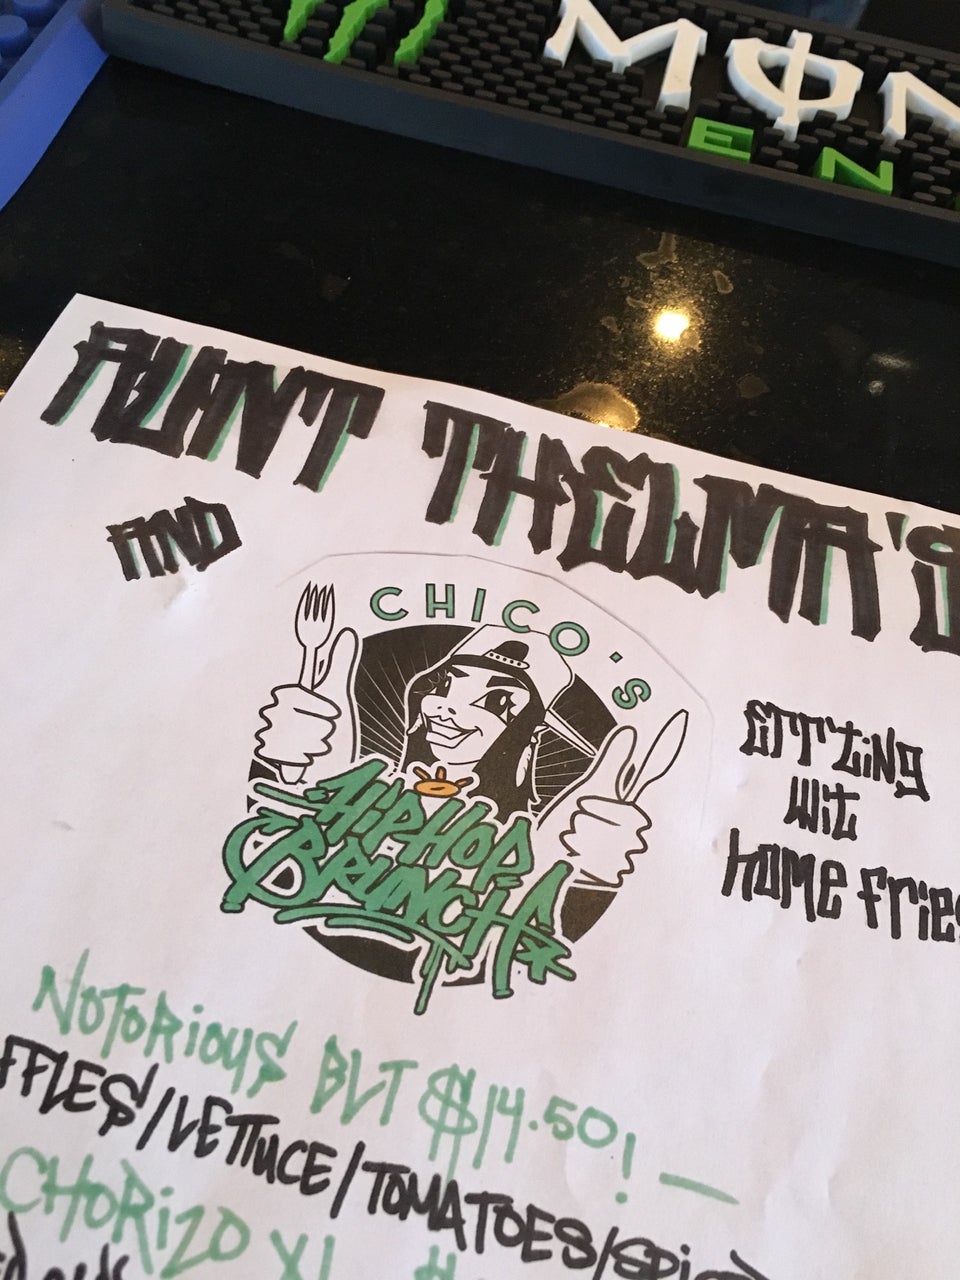 MON
EN
AUNT THELMA'S
AND
CHICO'S
HIPHOP
BRUNCH
home fries
NOTORiOUS BLT $14.50! —
FFLES/LETTUCE/TOMATOES/
CHORIZO